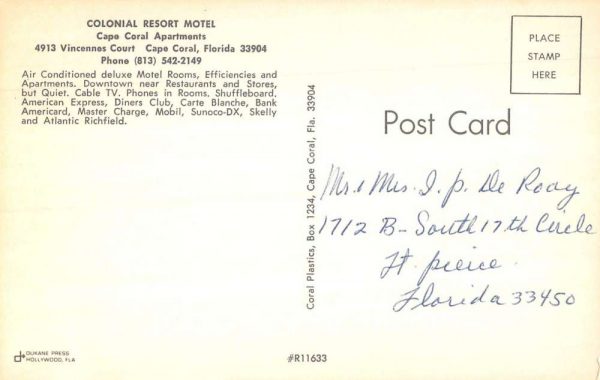 COLONIAL RESORT MOTEL
Cape Coral Apartments
4913 Vincennes Court Cape Coral, Florida 33904
Phone (813) 542-2149
Air Conditioned deluxe Motel Rooms, Efficiencies and
Apartments. Downtown near Restaurants and Stores,
but Quiet. Cable TV. Phones in Rooms. Shuffleboard.
American Express, Diners Club, Carte Blanche, Bank
Americard, Master Charge, Mobil, Sunoco-DX, Skelly
and Atlantic Richfield.
Coral Plastics, Box 1234, Cape Coral, Fla. 33904
PLACE
STAMP
HERE
Post Card
Mr. & Mrs. J. P. De Rooy
1712 B- South 17th Circle
Ft. pierce
Florida 33450
DUKANE PRESS
HOLLYWOOD, FLA
#R11633